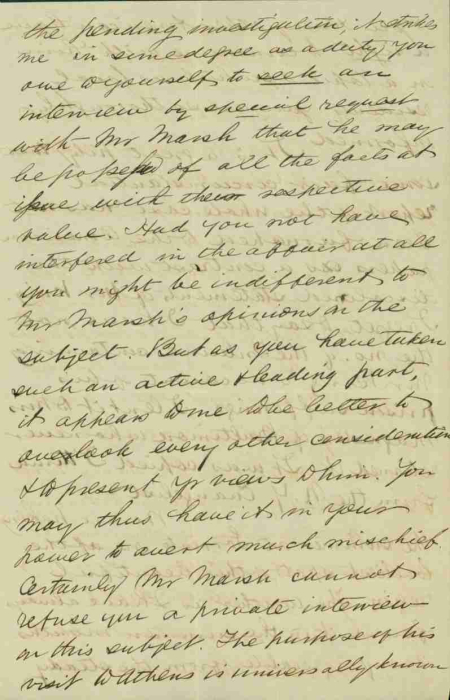 the pending investigation, it strikes
me in some degree as a duty you
owe to yourself to seek an
interview by special request
with Mr Marsh that he may
be possessed of all the facts at
issue with their respective
value. Had you not have
interfered in the affair at all
you might be indifferent to
Mr Marsh's opinions on the
subject. But as you have taken
such an active & leading part,
it appears to me to be better to
overlook every other consideration
& to present yr views to him. You
may thus have it in your
power to avert much mischief.
Certainly Mr Marsh cannot
refuse you a private interview
on this subject. The purpose of his
visit to Athens is universally known